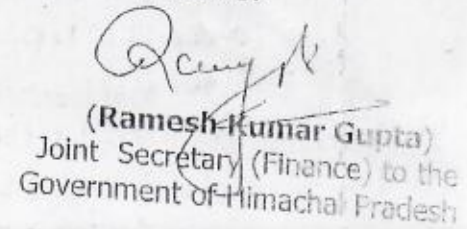 (Ramesh Kumar Gupta)
Joint Secretary (Finance) to the
Government of Himachal Pradesh